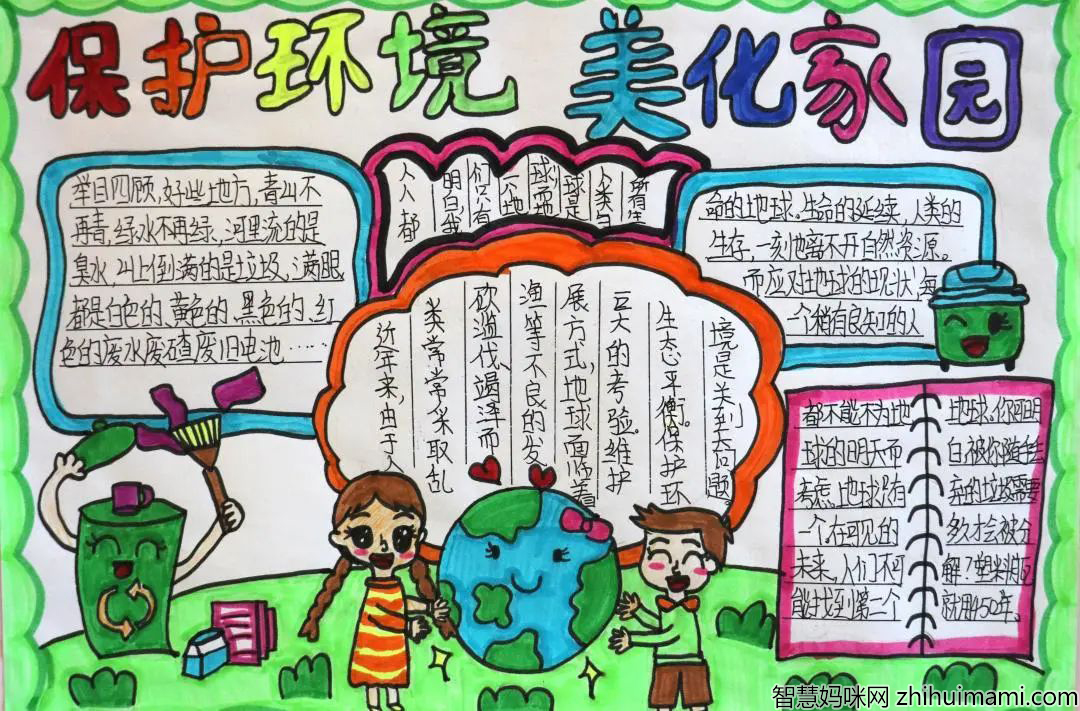 保护环境 美化家园
举目四顾,好些地方,青山不
再青,绿水不再绿,河里流的是
臭水,山上倒满的是垃圾,满眼
都是白色的、黄色的、黑色的、红
色的废水废碴废旧电池……
人人都
明白,我
们只有
一个地
球而
球是
人类
所有生
命的地球。生命的延续,人类的
生存,一刻也离不开自然资源。
而应对地球的现状,每
一个稍有良知的人
近年来,由于人
类常常采取乱
砍滥伐竭泽而
海等不良的发
展方式,地球面临着
巨大的考验。维护
生态平衡。保护环
境是关到大问题
都不能不为地
球的明天而
考虑。地球只有
一个,在可见的
未来,人们不可
能找到第二个
地球。你可明
白,被你随手丢
弃的垃圾需要
多久才会被分
解?塑料瓶
就用450年。
智慧妈咪网 zhihuimami.com